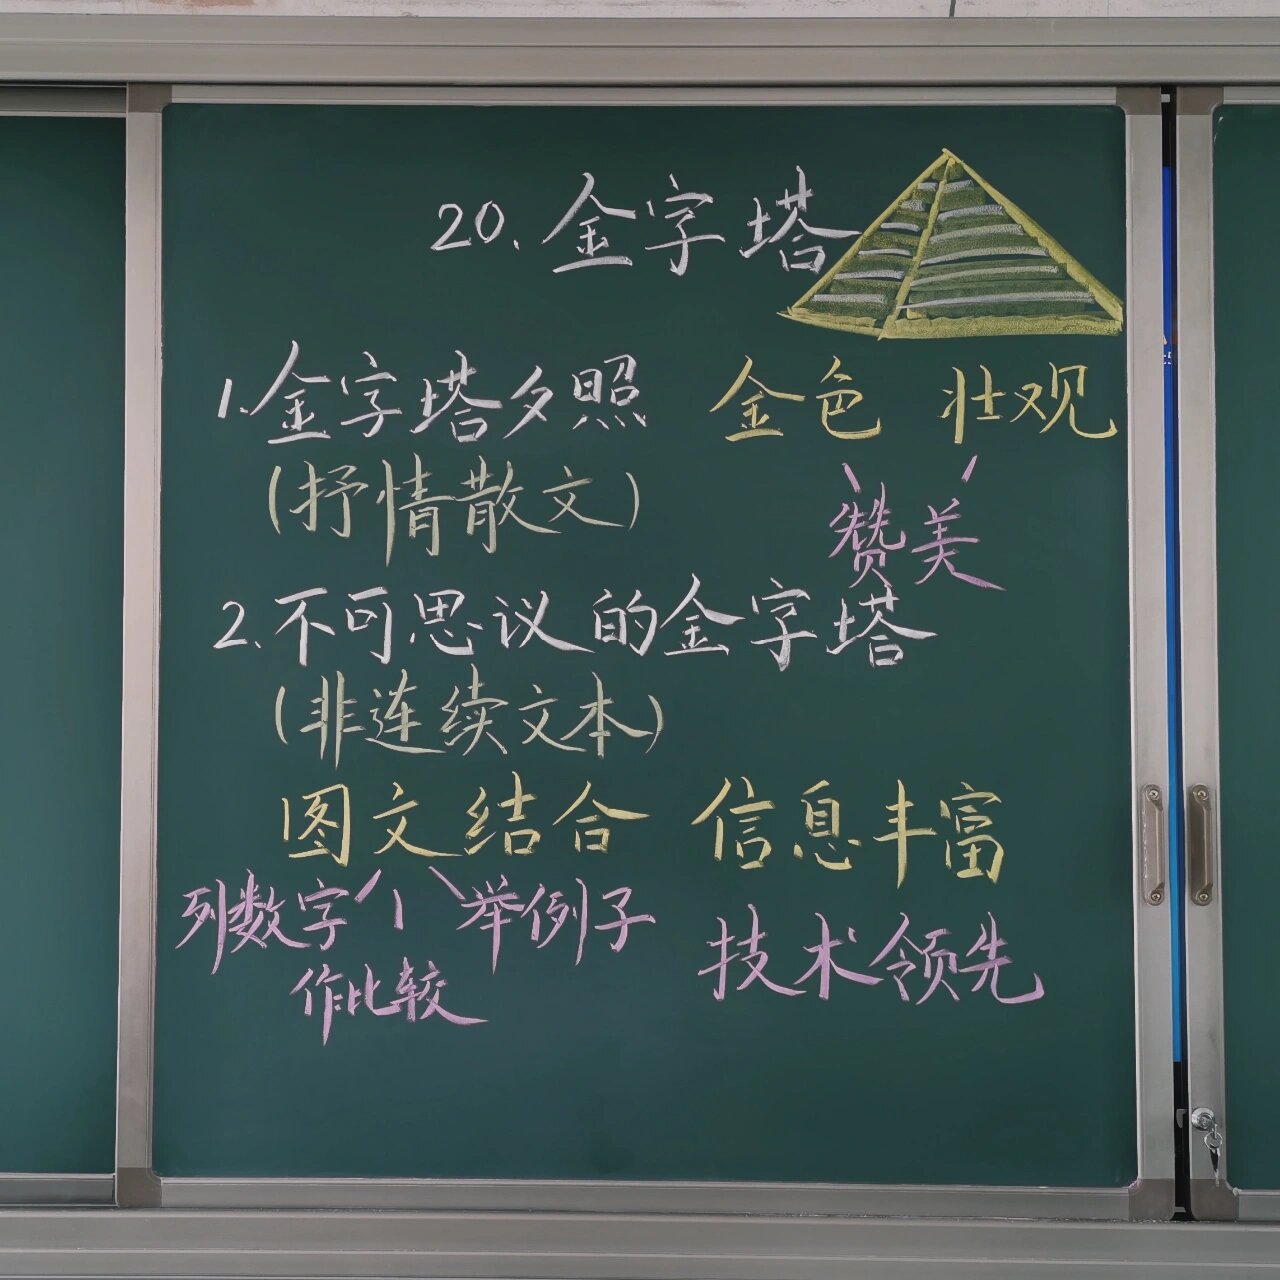 20.金字塔
1.金字塔夕照 金色 壮观
(抒情散文)
赞美
2.不可思议的金字塔
(非连续文本)
图文结合 信息丰富
列数字 举例子
作比较
技术领先